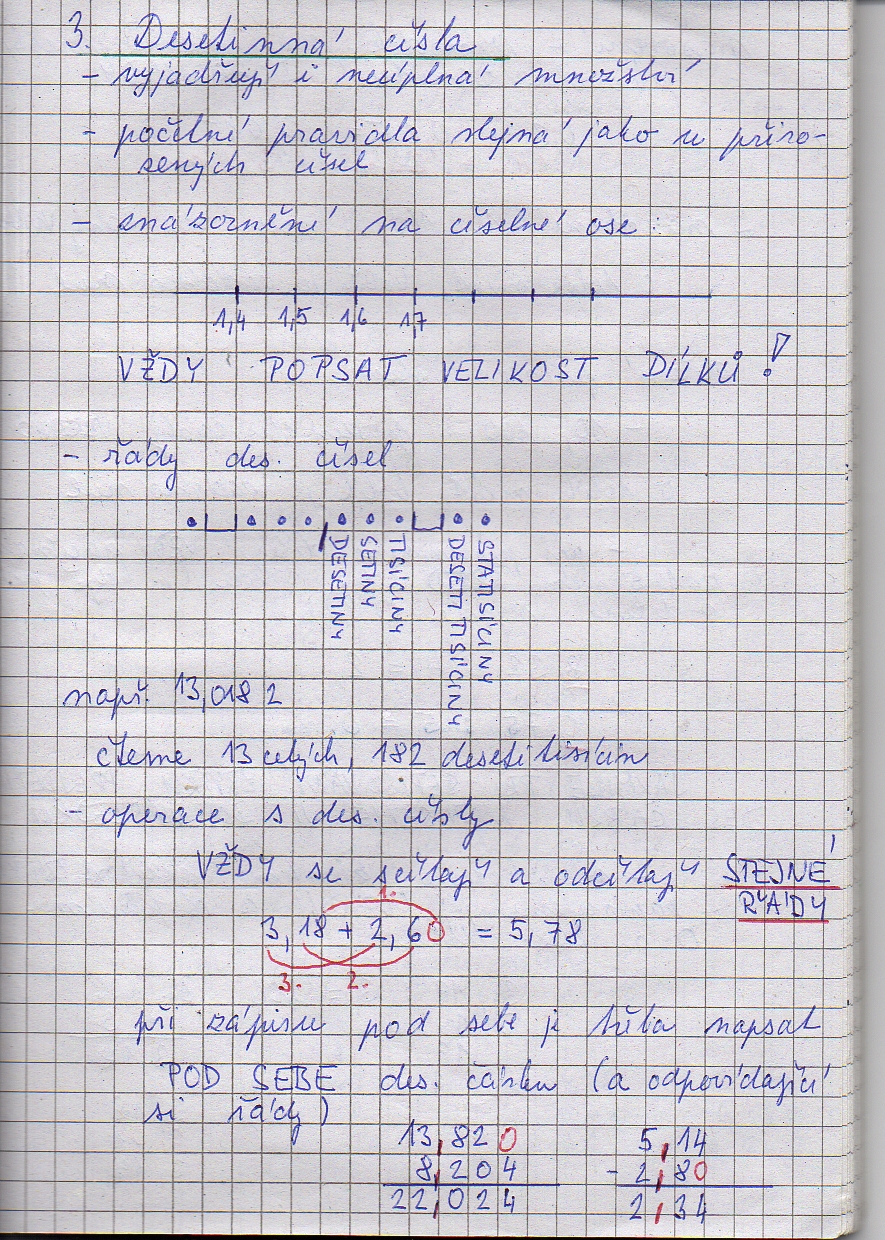 3. Desetinná čísla
- vyjadřují i neúplná množství
- početní pravidla stejná jako u přiro-
zených čísel
- znázornění na číselné ose:
1,4 1,5 1,6 1,7
VŽDY POPSAT VELIKOST DÍLKŮ!
- řády des. čísel
DESETINY
SETINY
TISÍCINY
DESETI TISÍCINY
STATISÍCINY
např. 13,018 2
čteme 13 celých, 182 desetitisícin
- operace s des. čísly
VŽDY se sčítají a odčítají STEJNÉ
ŘÁDY
1.
3,18 + 2,60 = 5,78
3. 2.
při zápisu pod sebe je třeba napsat
POD SEBE des. čárku (a odpovídající
si řády)
13,820 5,14
8,204 - 2,80
22,024 2,34